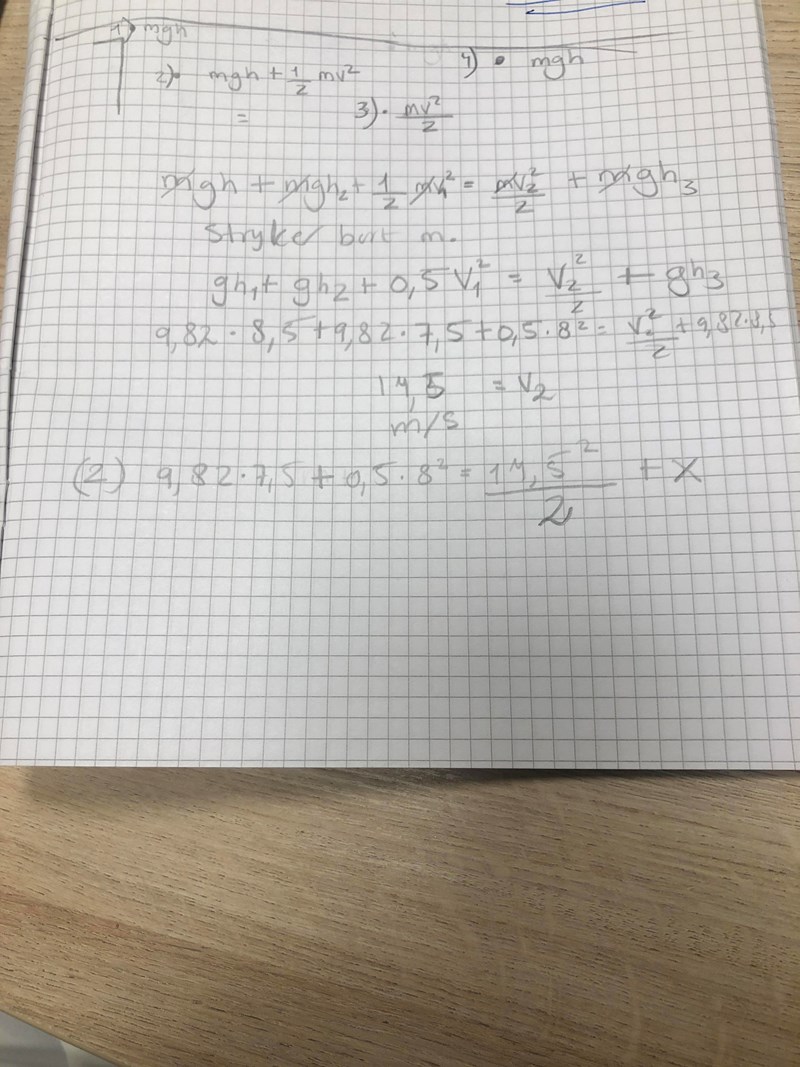 1) mgh
2) • mgh + 1/2 mv² 4) • mgh
= 3) • mv²/2
mgh + mgh₂ + 1/2 mv₁² = mv₂²/2 + mgh₃
Stryker bort m.
gh₁ + gh₂ + 0,5 v₁² = v₂²/2 + gh₃
9,82 · 8,5 + 9,82 · 7,5 + 0,5 · 8² = v₂²/2 + 9,82 · 8,5
14,5 = v₂
m/s
(2) 9,82 · 7,5 + 0,5 · 8² = 14,5²/2 + x